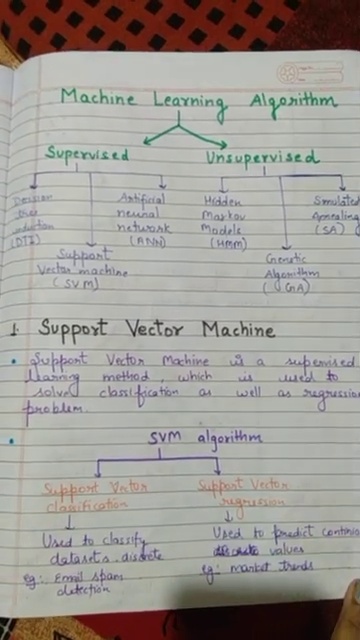 Machine Learning Algorithm
Supervised
Unsupervised
Decision
tree
induction
(DTI)
Support
Vector machine
(SVM)
Artificial
neural
network
(ANN)
Hidden
Markov
Models
(HMM)
Genetic
Algorithm
(GA)
Simulated
Annealing
(SA)
1. Support Vector Machine
• Support Vector Machine is a supervised
learning method which is used to
solve classification as well as regression
problem.
• SVM algorithm
Support Vector
classification
Used to classify
datasets discrete
eg: Email spam
detection
Support Vector
regression
Used to predict continuo
values
eg: market trends